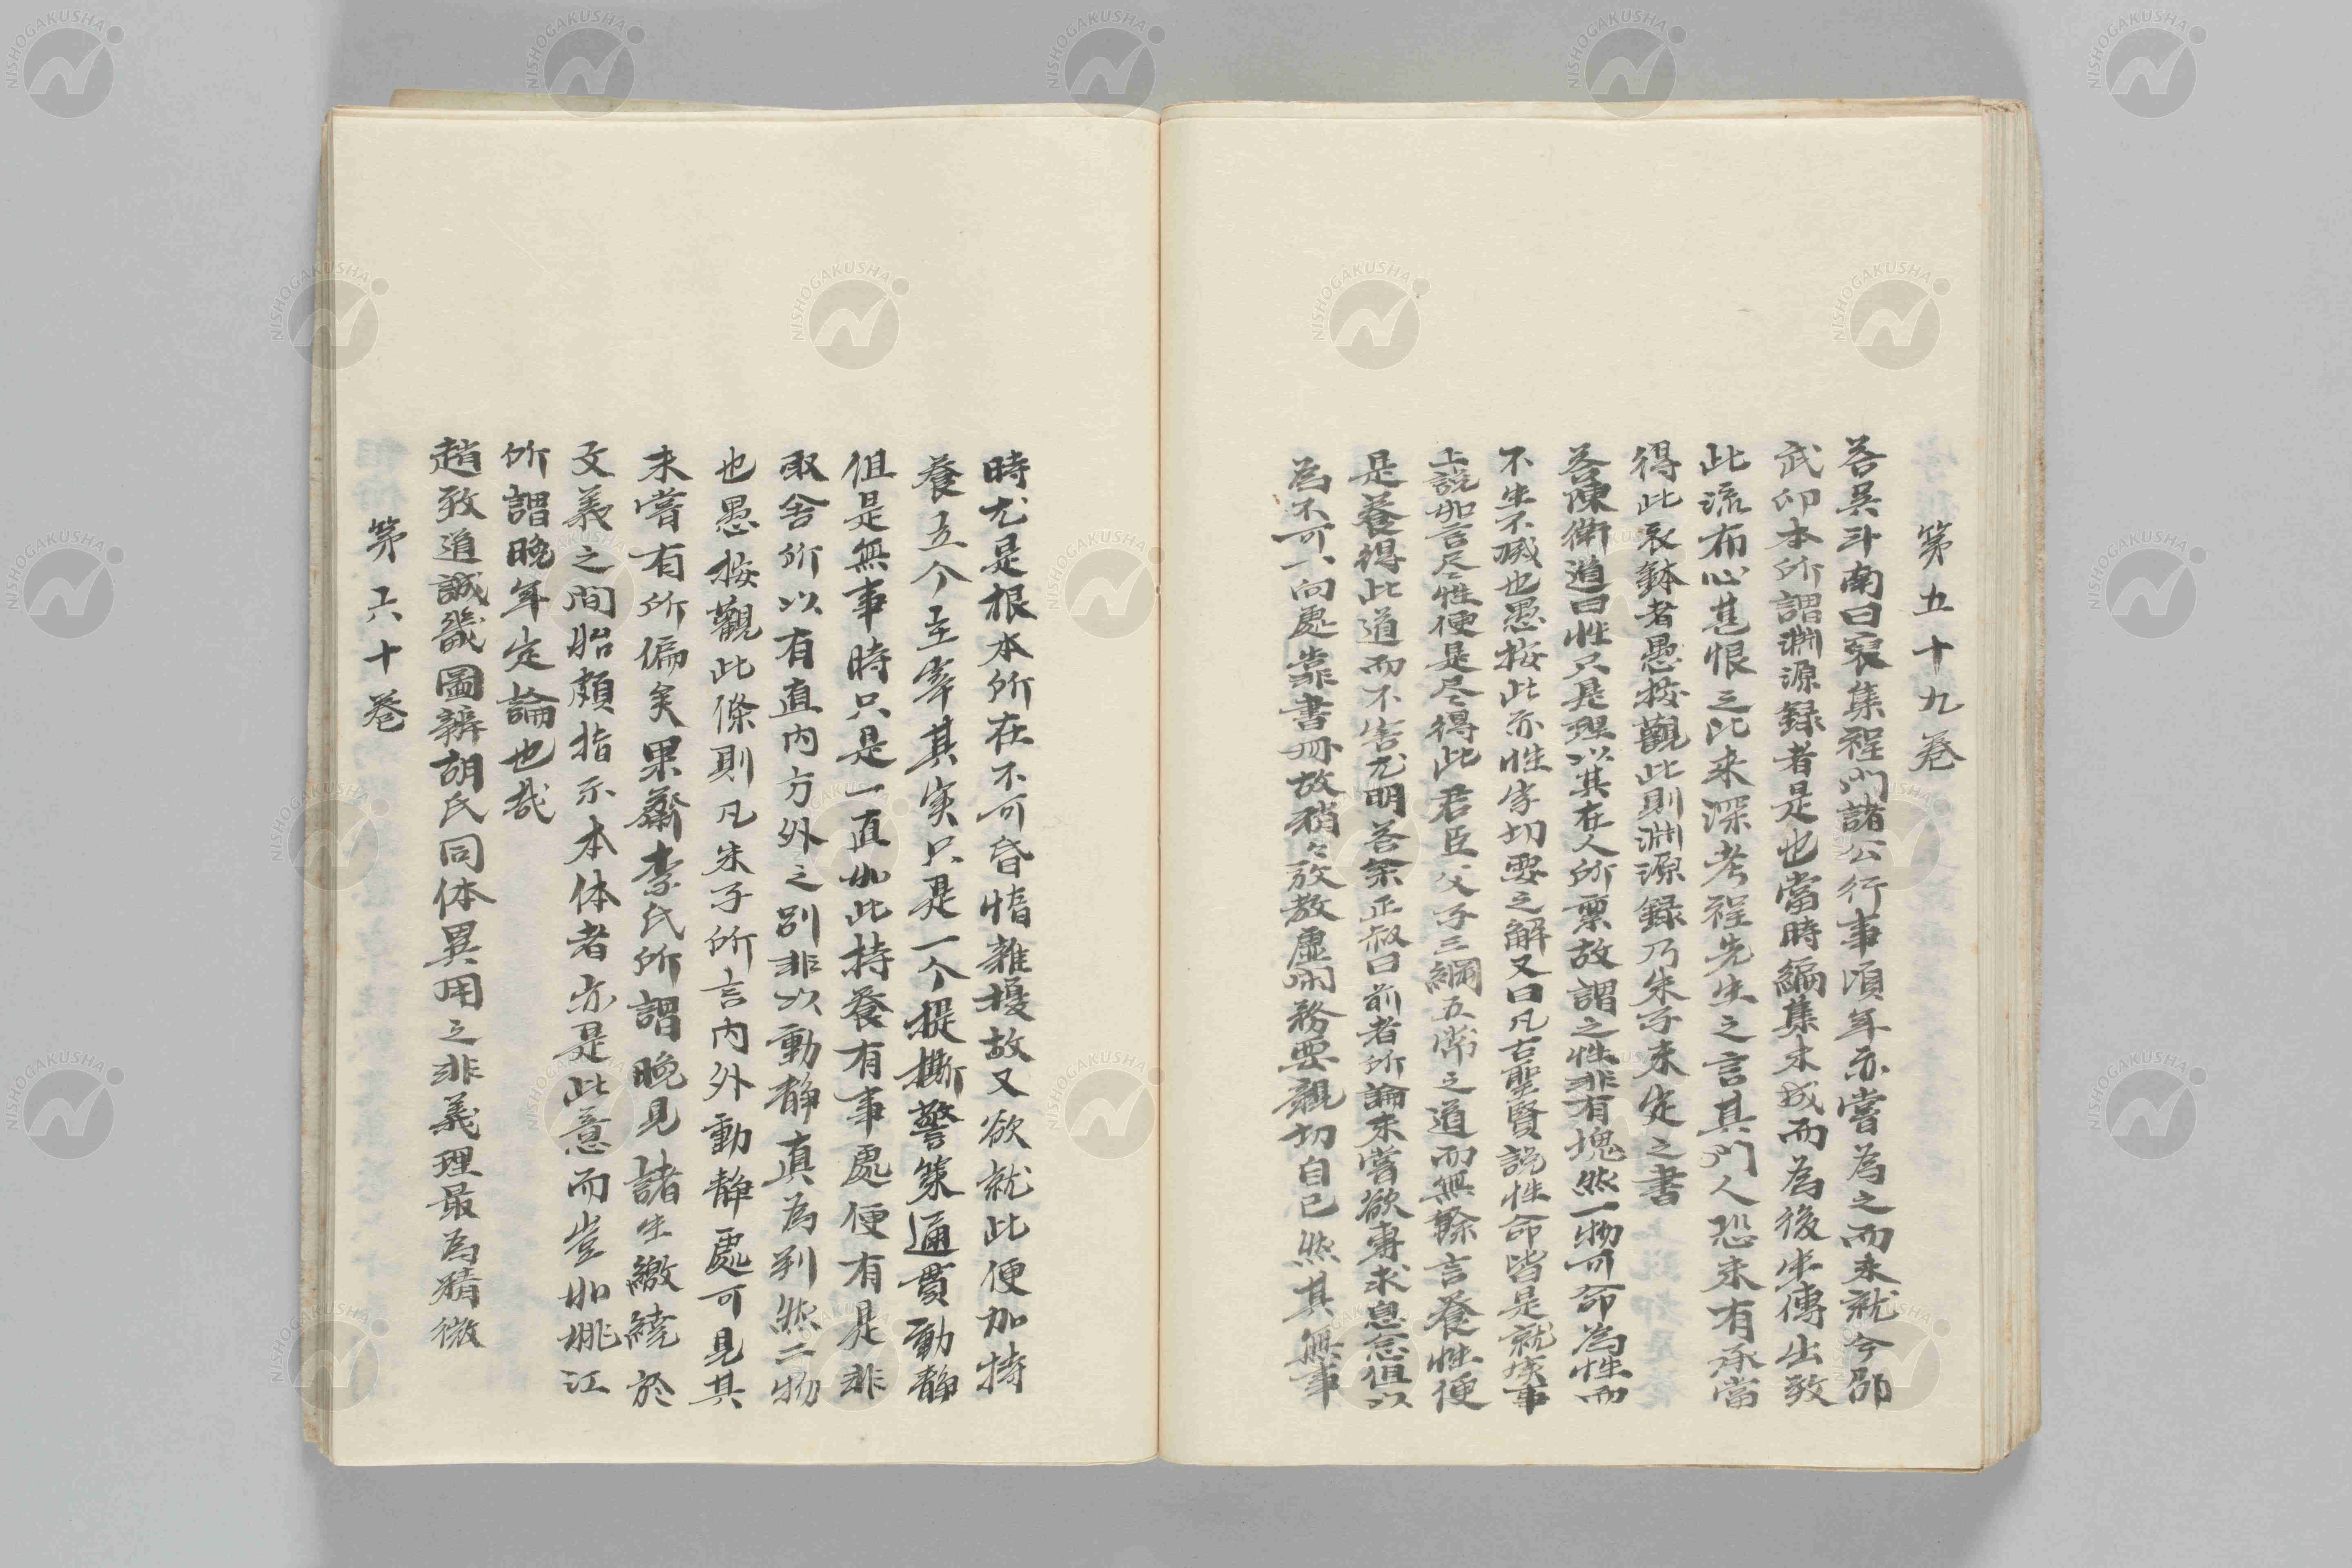 第五十九卷
答吳斗南曰裒集程門諸公行事頃年亦嘗為之而未就今邵
武印本所謂淵源録者是也當時編集未成而為後生傳出致
此流布心甚恨之比来深考程先生之言其門人恐未有承當
得此衣鉢者愚按觀此則淵源録乃朱子未定之書
答陳衛道曰性只是理以其在人所稟故謂之性非有塊然一物可命為性而
不生不滅也愚按此亦性字切要之解又曰凡古聖賢説性命皆是就実事
上説如言尽性便是尽得此君臣父子三綱五常之道而無餘言養性便
是養得此道而不害尤明答余正叔曰前者所論未嘗欲専求息念但以
為不可一向處靠書冊故稍々放教虚閑務要親切自己然其無事
時尤是根本所在不可昏惰雜擾故又欲就此便加持
養立个主宰其実只是一个提撕警策通貫動静
但是無事時只是一直如此持養有事處便有是非
取舍所以有直内方外之別非以動静真為判然二物
也愚按觀此條則凡朱子所言内外動静處可見其
未嘗有所偏矣果齋李氏所謂晩見諸生繳繞於
文義之間始頗指示本体者亦是此意而豈如姚江
所謂晩年定論也哉
趙致道誠幾圖辨胡氏同体異用之非義理最為精微
第六十卷